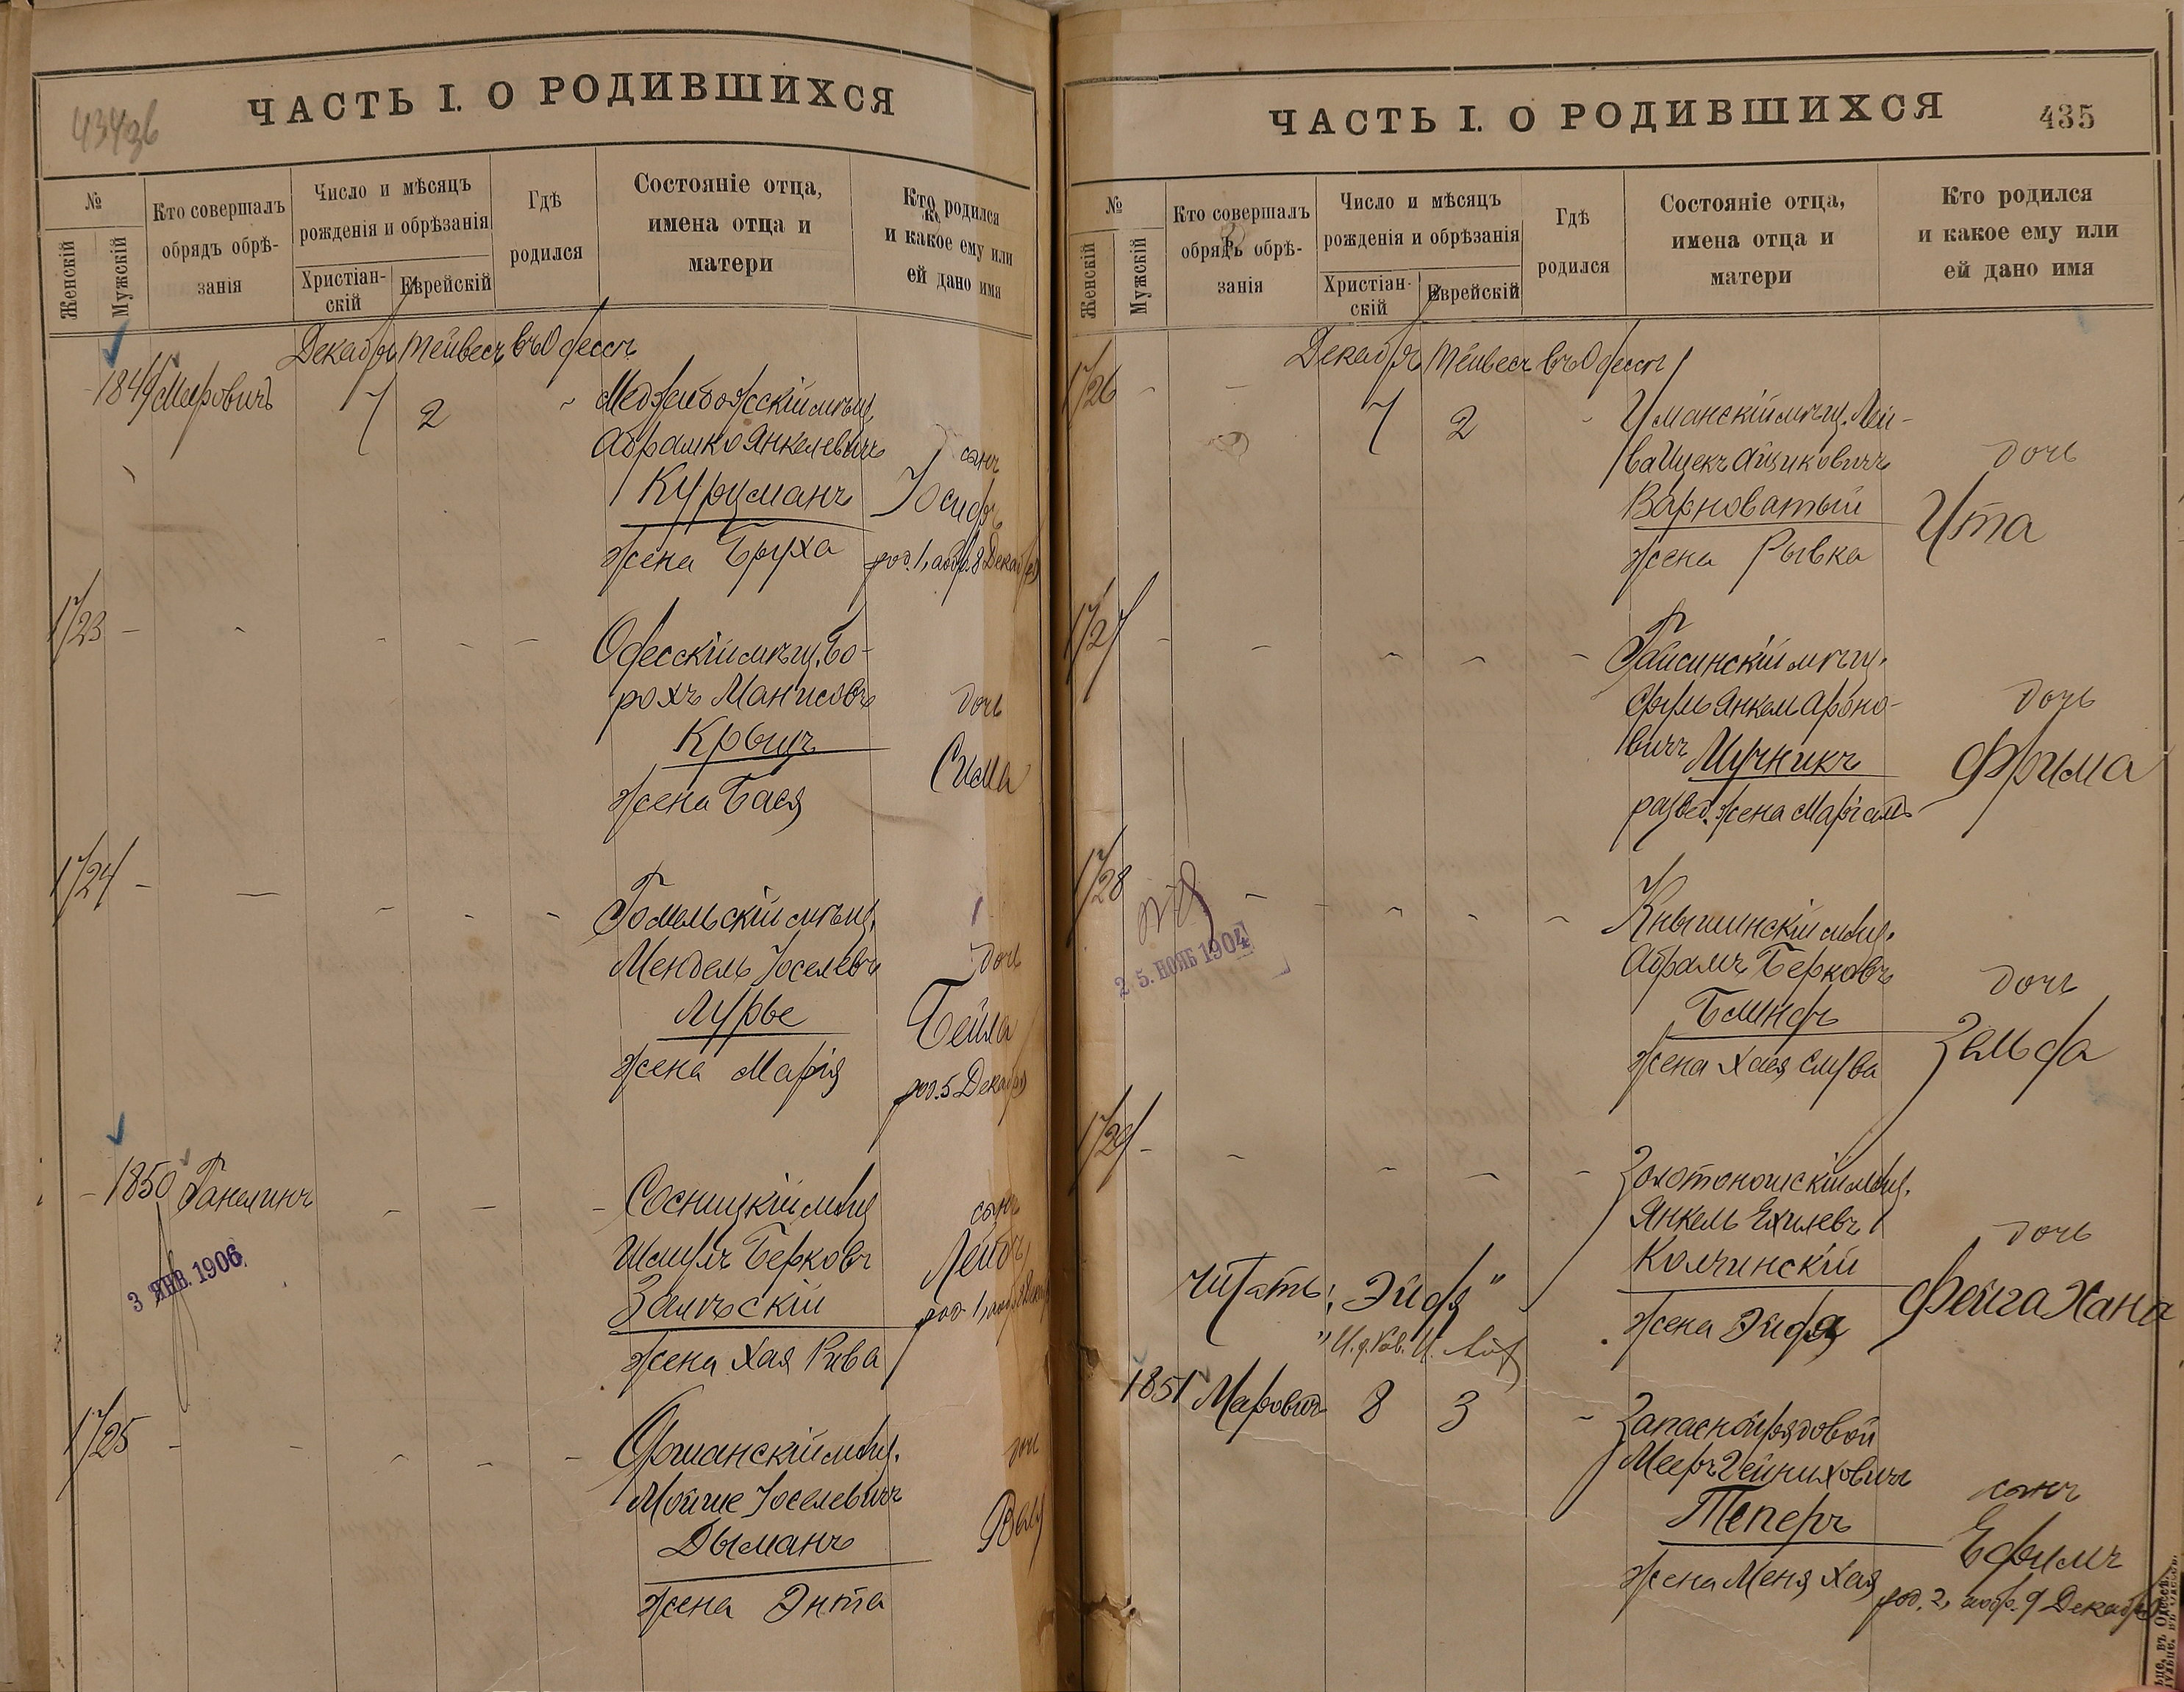 434об
ЧАСТЬ I. О РОДИВШИХСЯ
№
Женскій
Мужскій
Кто совершалъ
обрядъ обрѣ-
занія
Число и мѣсяцъ
рожденія и обрѣзанія
Христіан-
скій
Еврейскій
Гдѣ
родился
Состояніе отца,
имена отца и
матери
Кто родился
и какое ему или
ей дано имя
Декабрь Тейвесъ въ Одессѣ
1849 Меировичъ 7 2
Меджибожскій мѣщ.
Абрашко Янкелевичъ
Курцманъ
жена Бруха
сынъ
Іосифъ
род. 1, а обр. 8 Декабря
1723
Одесскій мѣщ. Бо-
рохъ Манисовъ
Крыцъ
жена Бася
дочь
Сима
1724
Гомельскій мѣщ.
Мендель Іоселевъ
Лурье
жена Марія
дочь
Бейла
род. 5 Декабря
1850 Ганелинъ
3 ЯНВ. 1906
Сосницкій мѣщ
Шмулъ Берковъ
Залѣскій
жена Хая Рива
сынъ
Лейбъ
род. 1, а обр. 8 Декаб
1725
Оршанскій мѣщ.
Мойше Іоселевичъ
Дыманъ
жена Энта
дочь
ЧАСТЬ I. О РОДИВШИХСЯ
435
№
Женскій
Мужскій
Кто совершалъ
обрядъ обрѣ-
занія
Число и мѣсяцъ
рожденія и обрѣзанія
Христіан-
скій
Еврейскій
Гдѣ
родился
Состояніе отца,
имена отца и
матери
Кто родился
и какое ему или
ей дано имя
Декабрь Тейвесъ въ Одессѣ
1726 7 2
Уманскій мѣщ. Лей-
ба Ицекъ Айзиковичъ
Варноватый
жена Рывка
дочь
Ита
1727
Гайсинскій мѣщ.
Сруль Янкель Ароно-
вичъ Мучникъ
развед. жена Маріамъ
дочь
Фрима
1728
25 НОЯБ 1904
Кнышинскій мѣщ.
Абрамъ Берковъ
Блиндъ
жена Хая Слува
дочь
Зельда
1729
Золотоношскій мѣщ.
Янкель Ехилевъ
Колчинскій
жена Эйдя
дочь
Фейга Хана
Читать: „Эйдя"
1851 Меровичъ 8 3
Запасной рядовой
Мееръ Гейниховичъ
Теперъ
жена Меня Хая
сынъ
Ефимъ
род. 2, а обр. 9 Декабря